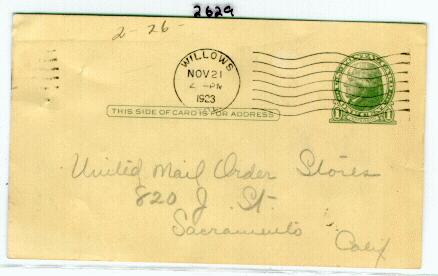 2629
2-26-
WILLOWS
NOV 21
2-PM
1923
THIS SIDE OF CARD IS FOR ADDRESS
1 1
United Mail Order Stores
820 J. St.
Sacramento
Calif